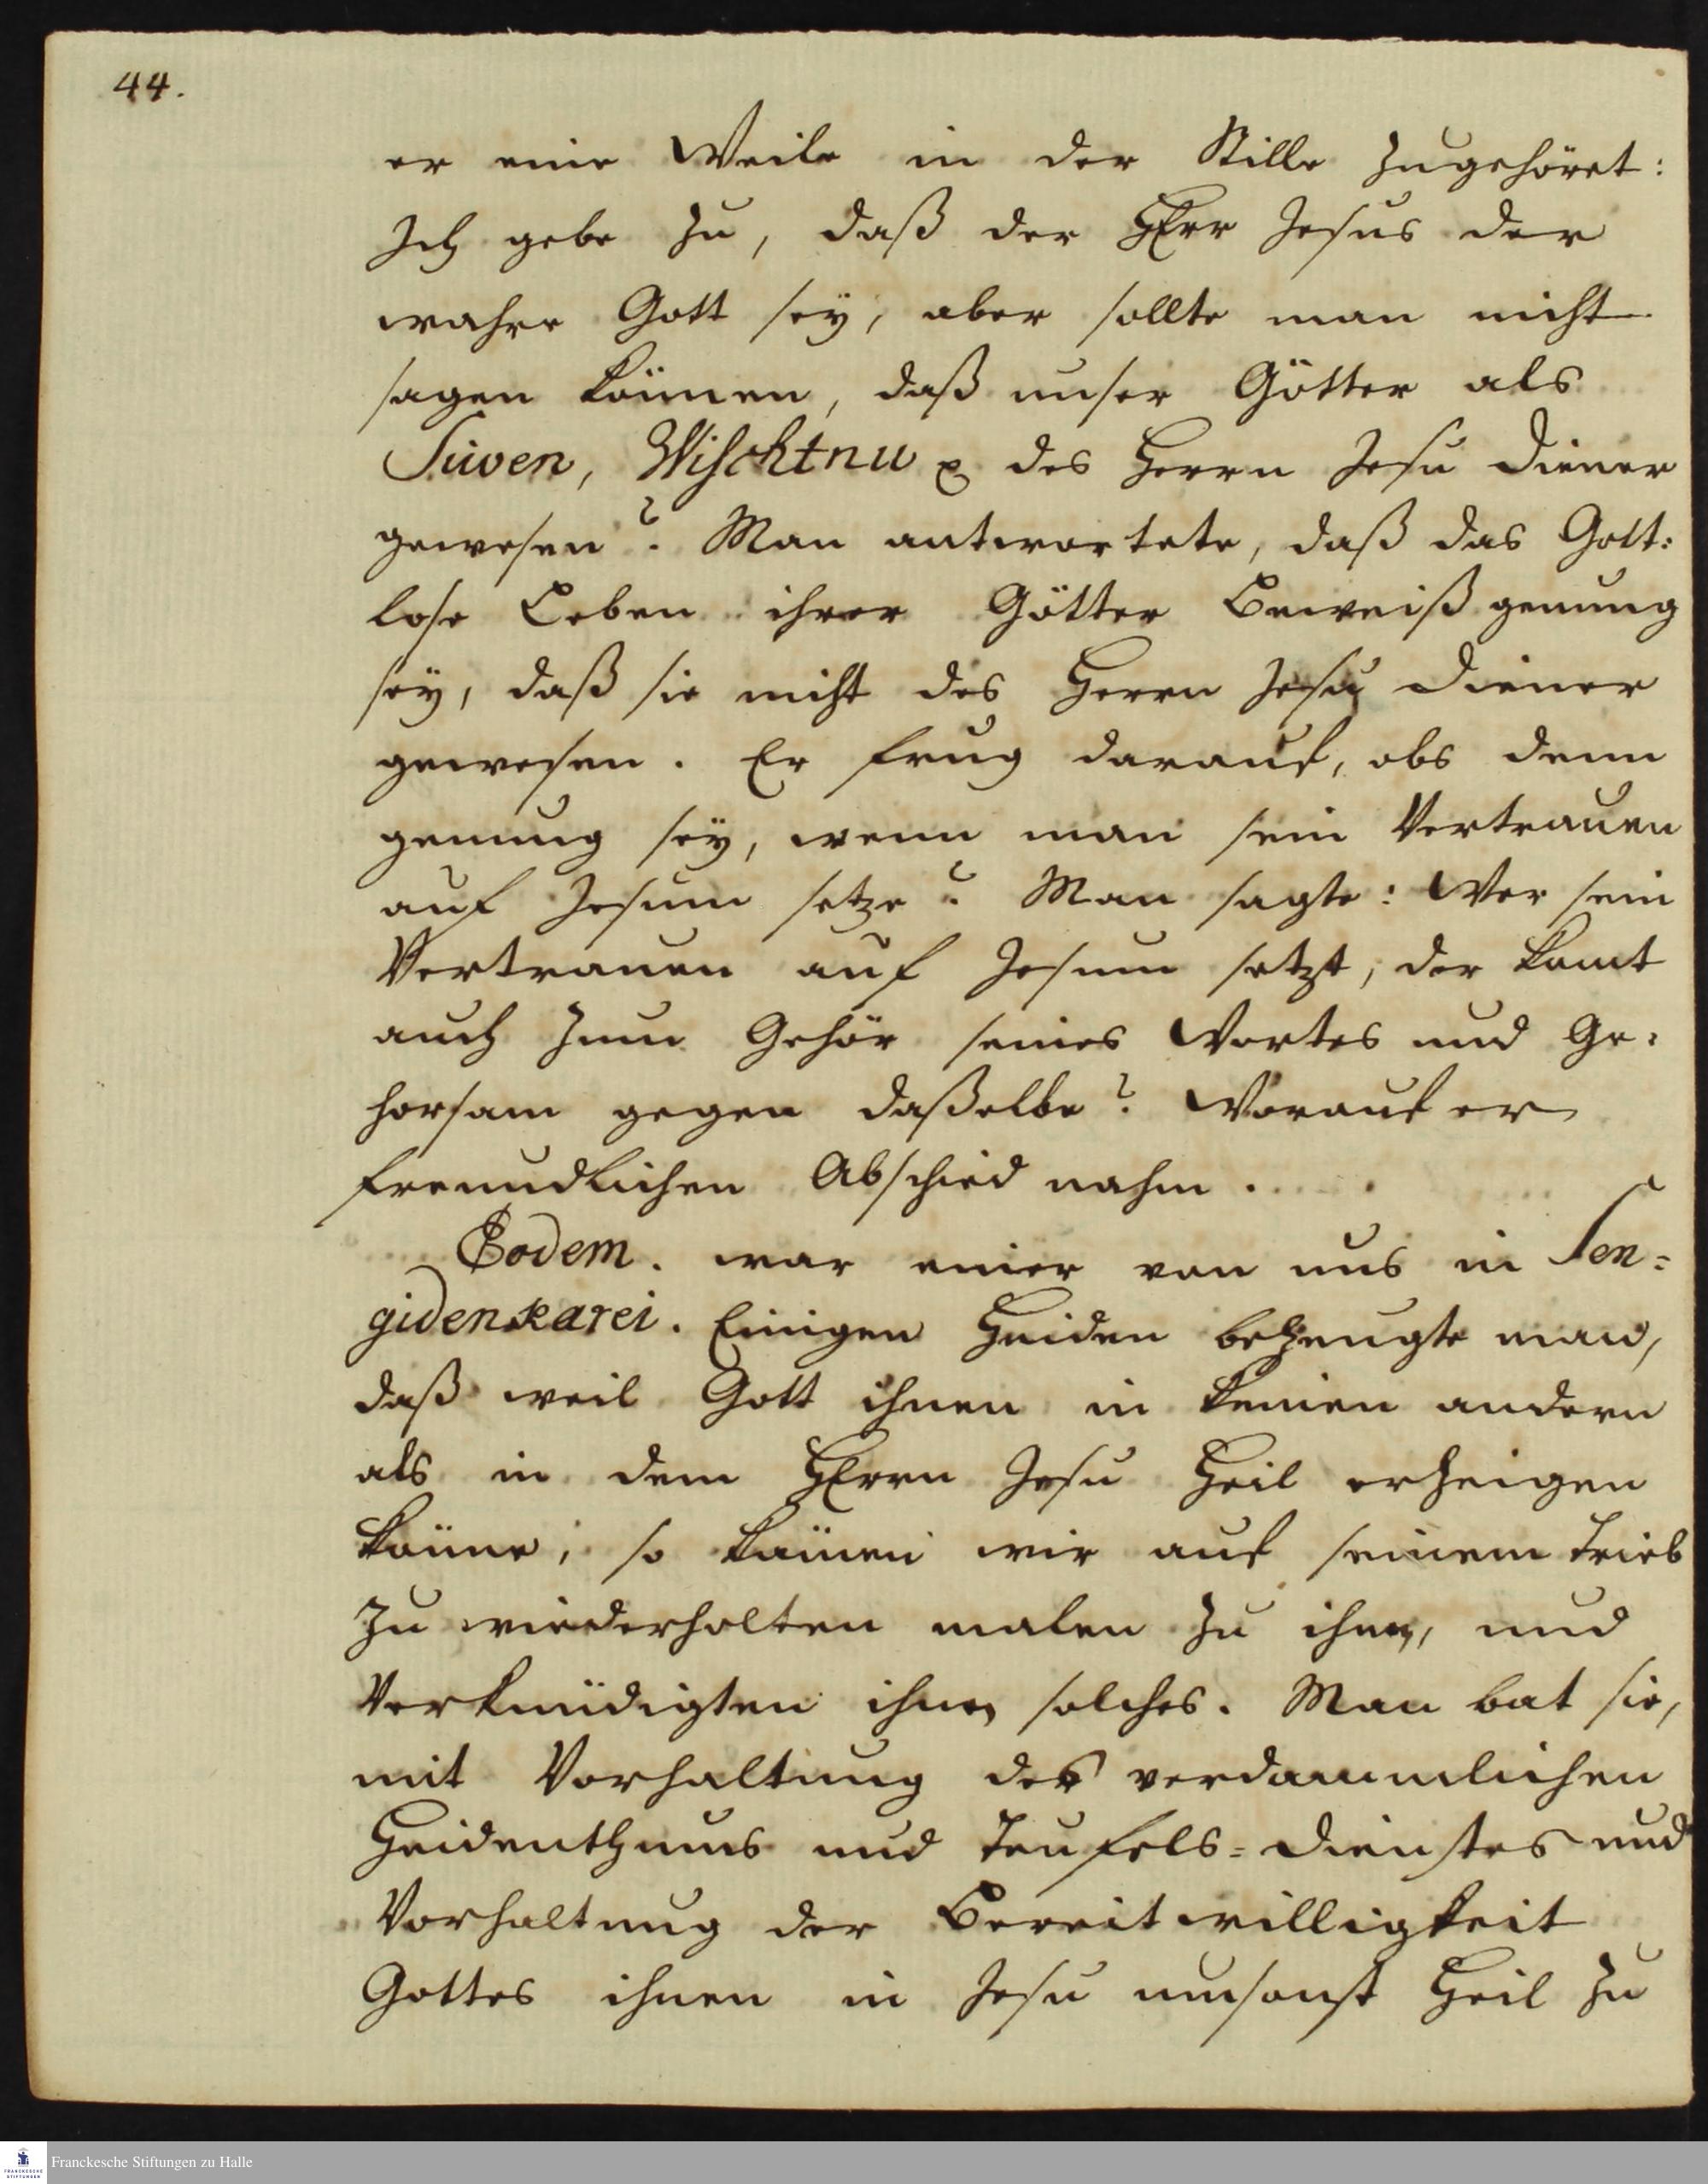 44.
er eine Weile in der Stille zugehöret:
Ich gebe zu, daß der HErr Jesus der
wahre Gott sey, aber sollte man nicht
sagen können, daß unser Götter als
Siwen, Wischtnu ꝛc des Herrn Jesu Diener
gewesen? Man antwortete, daß das Gott:
lose Leben ihrer Götter Beweiß genung
sey, daß sie nicht des Herrn Jesu Diener
gewesen. Er frug darauf, obs denn
genung sey, wenn man sein Vertrauen
auf Jesum setze? Man sagte: Wer sein
Vertrauen auf Jesum setzt, der komt
auch zum Gehör seines Wortes und Ge:
horsam gegen daßelbe? Worauf er
freundlichen Abschied nahm.
Bodem. war einer von uns in Sen=
gidenkarei. Einigen Heiden bezeugte man,
daß weil Gott ihnen in keinen andern
als in dem HErrn Jesu Heil erzeigen
könne, so kämen wir auf seinem Trieb
zu wiederholten malen zu ihnen, und
Verkündigten ihnen solches. Man bat sie,
mit Vorhaltung des verdammlichen
Heidenthums und Teufels=Dienstes und
Vorhaltung der Bereitwilligkeit
Gottes ihnen in Jesu umsonst Heil zu
Franckesche Stiftungen zu Halle
FRANCKESCHE
STIFTUNGEN